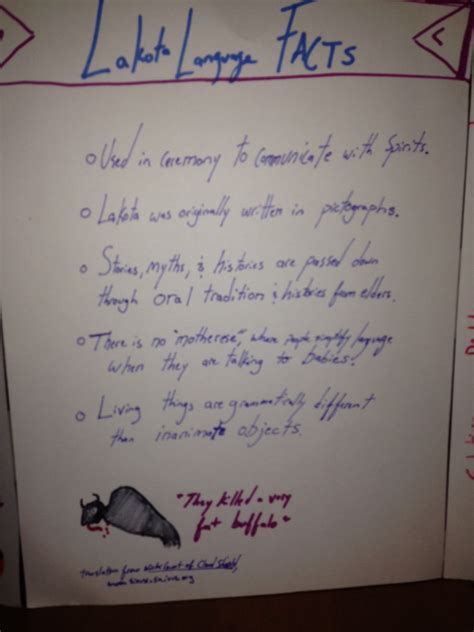 Lakota Language FACTS
o Used in ceremony to communicate with Spirits.
o Lakota was originally written in pictographs.
o Stories, myths, & histories are passed down
through oral tradition & histories from elders.
o There is no "motherese," where people simplify language
when they are talking to babies.
o Living things are grammatically different
than inanimate objects.
"They killed a very
fat buffalo"
translation from Winter Count of Cloud Shield,